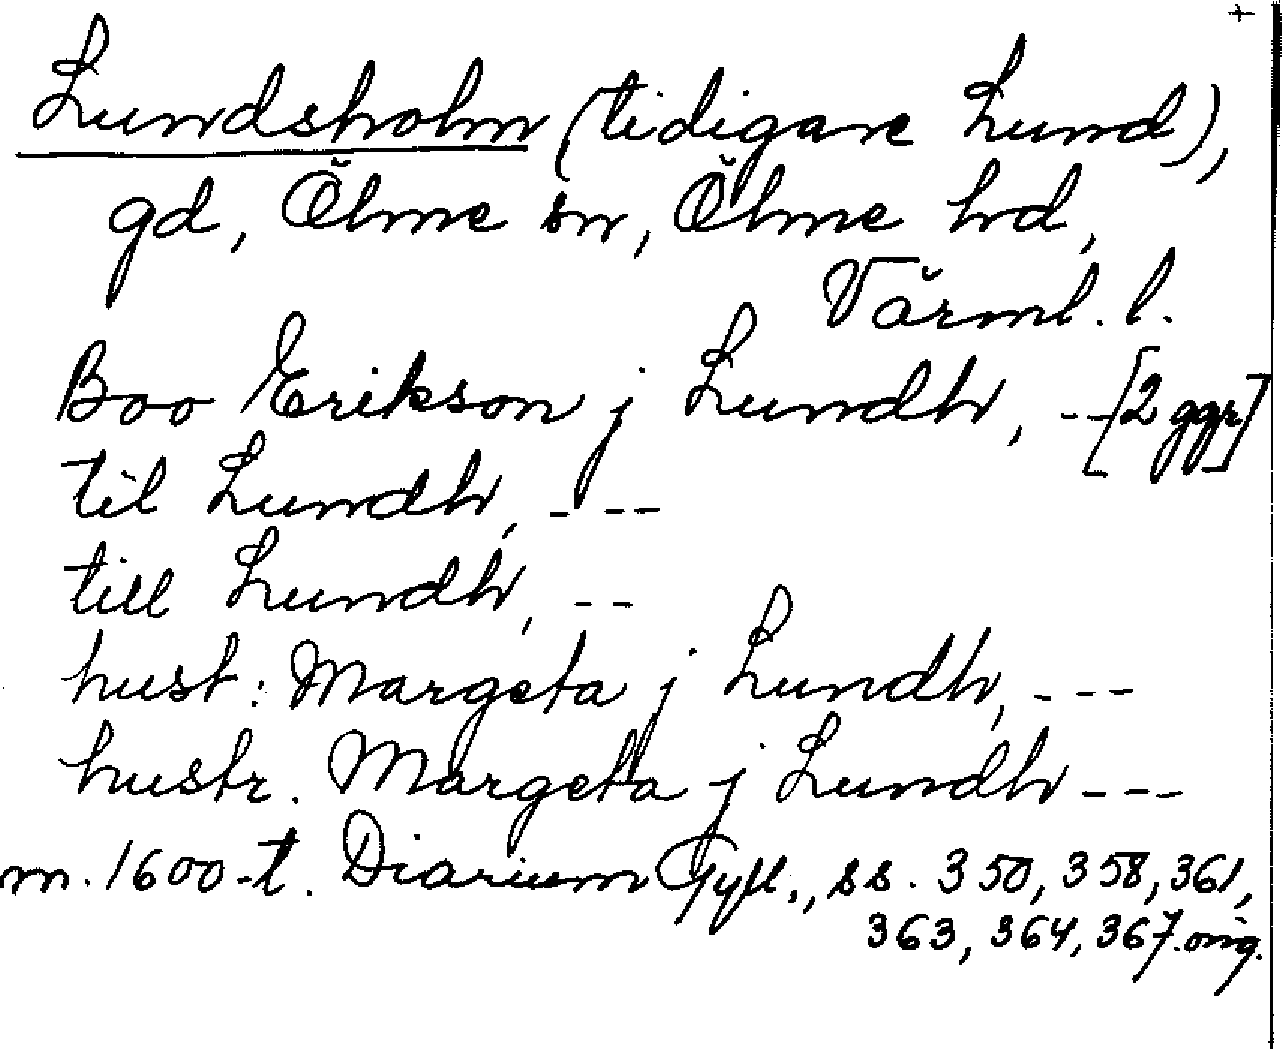 +
Lundsholm (tidigare Lund),
gd, Ölme sn, Ölme hd,
Värml. l.
Boo Erikson j Lundh, --- [2 ggr]
til Lundh, ---
till Lundh, --
hust: Margeta j Lundh, ---
hustr. Margeta j Lundh ---
m. 1600-t. Diarium Gyll., ss. 350, 358, 361,
363, 364, 367. orig.